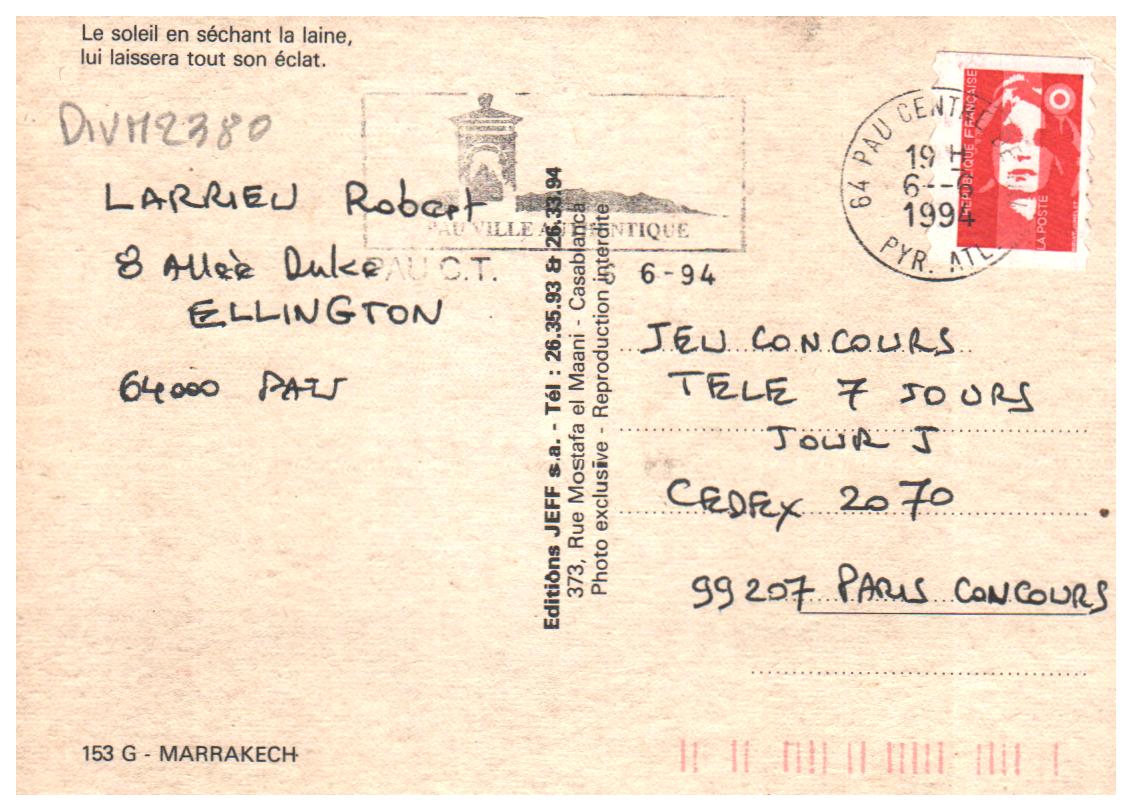 Le soleil en séchant la laine,
lui laissera tout son éclat.
DIVM2380
LARRIEU Robert
8 Allée Duke
ELLINGTON
64000 PAU
PAU VILLE AUTHENTIQUE
PAU C.T.
6-94
64 PAU CENTRE
19 H
6--6
1994
PYR. ATL
REPUBLIQUE FRANÇAISE
LA POSTE
Editions JEFF s.a. - Tél : 26.35.93 & 26.33.94
373, Rue Mostafa el Maani - Casablanca
Photo exclusive - Reproduction interdite
JEU CONCOURS
TELE 7 JOURS
JOUR J
CEDEX 2070
99207 PARIS CONCOURS
153 G - MARRAKECH